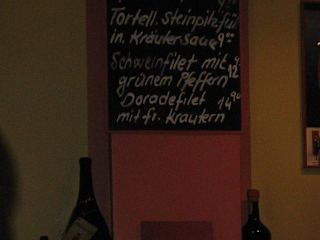 Tortell. Steinpilzfül
in. Kräutersauce 9⁰⁰
Schweinfilet mit
grünem Pfeffern 12
Doradefilet 14⁹⁰
mit fr. Kräutern